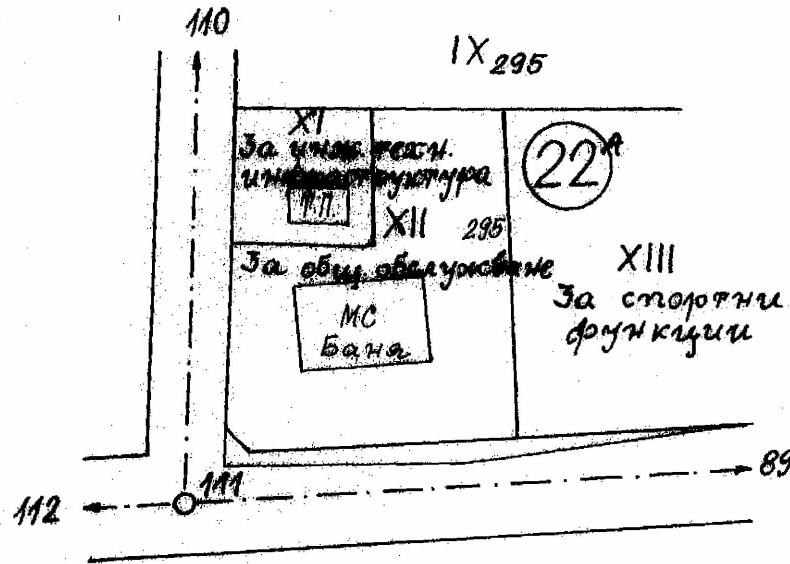 110
IX 295
XI
За инж. техн.
инфраструктура
Т.П.
22 А
XII 295
За общ. обслужване
XIII
За спортни
функции
МС
Баня
111
112
89